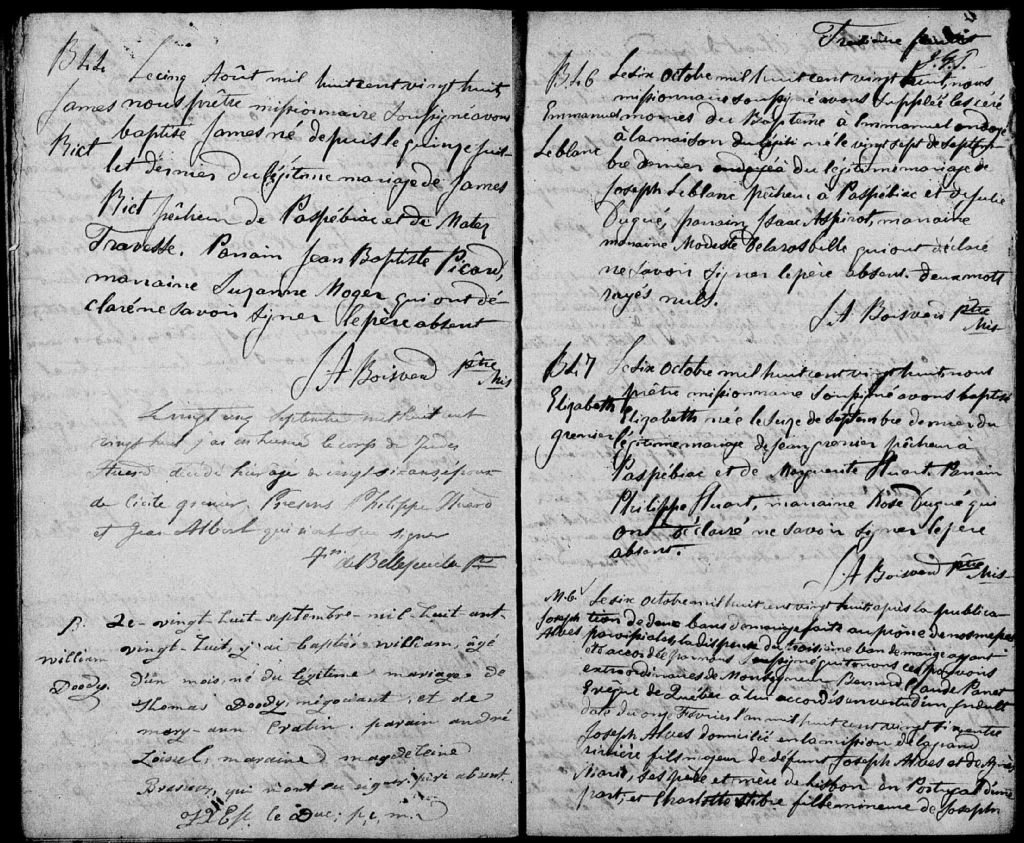 B44 Le cinq Août mil huit cent vingt huit,
James nous prêtre missionnaire soussigné avons
baptisé James né depuis le quinze juil-
Bict let dernier du légitime mariage de James
Bict pêcheur de Paspébiac et de Mater
Travesse. Parrain Jean Baptiste Picard,
marraine Suzanne Moger qui ont dé-
claré ne savoir signer le père absent
JA Boisverd ptre
Mis
Le vingt cinq septembre mil huit cent
vingt huit j'ai inhumé le corps de
décédé hier âgé de vingt six ans époux
de Cécile grenier. Présens Philippe Huard
et Jean Albert qui n'ont su signer
de Bellefeuille Ptre
B. Le vingt-huit-septembre-mil-huit-cent
vingt-huit, j'ai baptisé william, âgé
william d'un mois, né du légitime mariage de
Doody. Thomas Doody, négociant, et de
mary-ann Cratin. parain andré
Loisel, maraine magdeleine
qui n'ont su signer père absent.
le Duc. p. m.
Troisième feuillet
J.G.T.
B46 Le six octobre mil huit cent vingt huit, nous
missionnaire soussigné avons suppléé les céré
Emmanuel monies du Baptême à Emmanuel ondoyé
Leblanc à la maison du légiti né le vingt sept de septem-
bre dernier ondoyéà du légitime mariage de
Joseph Leblanc pêcheur à Paspébiac et de Julie
Dugué, parrain Isaac Aspirot, marraine
marraine Modeste Delarosbille qui ont déclaré
ne savoir signer le père absent. deux mots
rayés nuls.
JA Boisverd ptre
Mis
B47 Le six octobre mil huit cent vingt huit nous
prêtre missionnaire soussigné avons baptisé
Elizabeth Elizabeth née le seize de septembre dernier du
grenier légitime mariage de Jean grenier pêcheur à
Paspébiac et de Marguerite Huart. Parrain
Philippe Huart, marraine Rose Dugué qui
ont déclaré ne savoir signer le père
absent.
JA Boisverd ptre
Mis
M.6 Le six octobre mil huit cent vingt huit après la publica
Joseph tion de deux bans de mariage faite au prône de nos messes
Alves paroissiales la dispense du troisième ban de mariage ayant
été accordée par nous soussigné en vertu des pouvoirs
extraordinaires de Monseigneur Bernard Claude Panet
Evêque de Québec à lui accordés en vertu d'un indult
daté du onze Février l'an mil huit cent vingt six entre
Joseph Alves domicilié en la mission de la grand
rivière fils majeur de défunt Joseph Alves et de
ses père et mère de Lisbon en Portugal d'une
part, et Charlotte fille mineure de Joseph